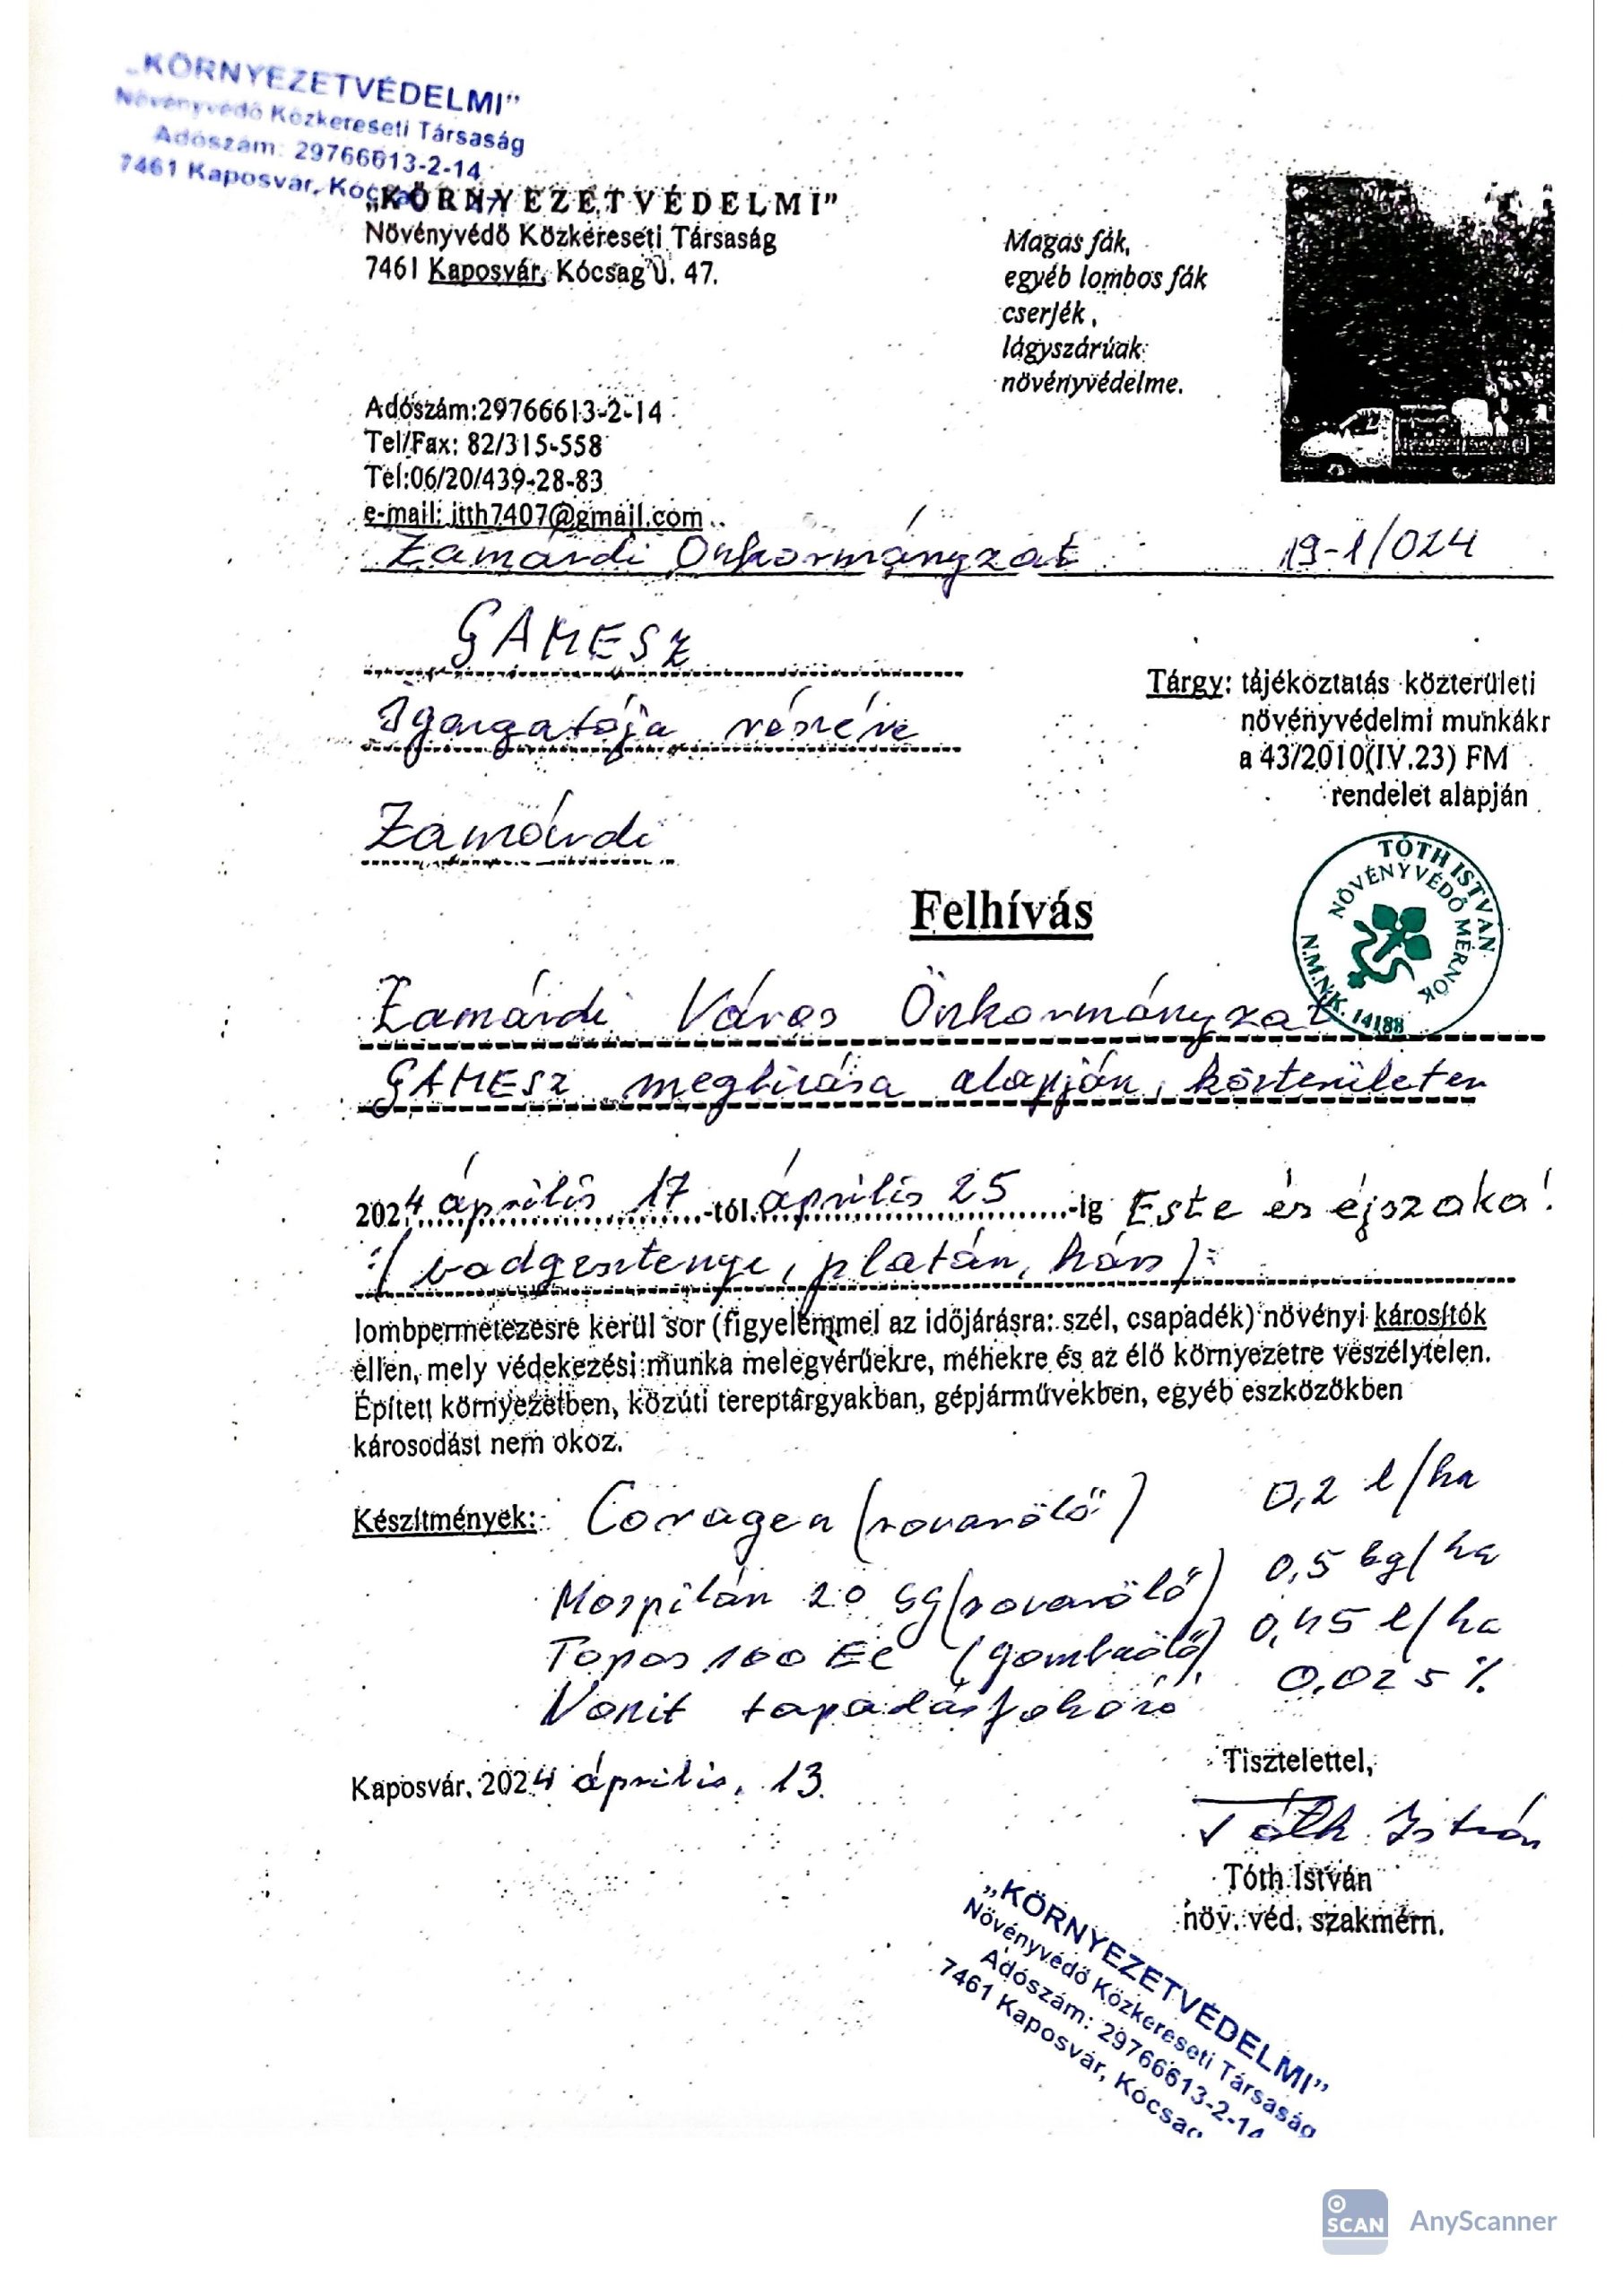 „KÖRNYEZETVÉDELMI”
Növényvédő Közkereseti Társaság
Adószám: 29766613-2-14
7461 Kaposvár, Kócsag
„KÖRNYEZETVÉDELMI”
Növényvédő Közkereseti Társaság
7461 Kaposvár, Kócsag u. 47.
Magas fák,
egyéb lombos fák
cserjék,
lágyszárúak
növényvédelme.
Adószám:29766613-2-14
Tel/Fax: 82/315-558
Tel:06/20/439-28-83
e-mail: jtth7407@gmail.com
Zamárdi Önkormányzat 19-1/024
GAMESZ
Igazgatója részére
Zamárdi
Tárgy: tájékoztatás közterületi
növényvédelmi munkákr
a 43/2010(IV.23) FM
rendelet alapján
TÓTH ISTVÁN
NÖVÉNYVÉDŐ MÉRNÖK
N.M.N.K. 14188
Felhívás
Zamárdi Város Önkormányzat
GAMESZ megbízása alapján, közterületen
2024 április 17 -tól április 25 -ig Este és éjszaka!
:( vadgesztenye, platán, hárs ):
lombpermetezésre kerül sor (figyelemmel az időjárásra: szél, csapadék) növényi károsítók
ellen, mely védekezési munka melegvérűekre, méhekre és az élő környezetre veszélytelen.
Épített környezetben, közúti tereptárgyakban, gépjárművekben, egyéb eszközökben
károsodást nem okoz.
Készítmények: Coragen (rovarölő) 0,2 l/ha
Mospilán 20 SG (rovarölő) 0,5 kg/ha
Topas 100 EC (gombaölő) 0,45 l/ha
Nonit tapadásfokozó 0,025 %
Kaposvár, 2024 április. 13.
Tisztelettel,
Tóth István
Tóth István
növ. véd. szakmérn.
„KÖRNYEZETVÉDELMI”
Növényvédő Közkereseti Társaság
Adószám: 29766613-2-14
7461 Kaposvár, Kócsag
SCAN AnyScanner